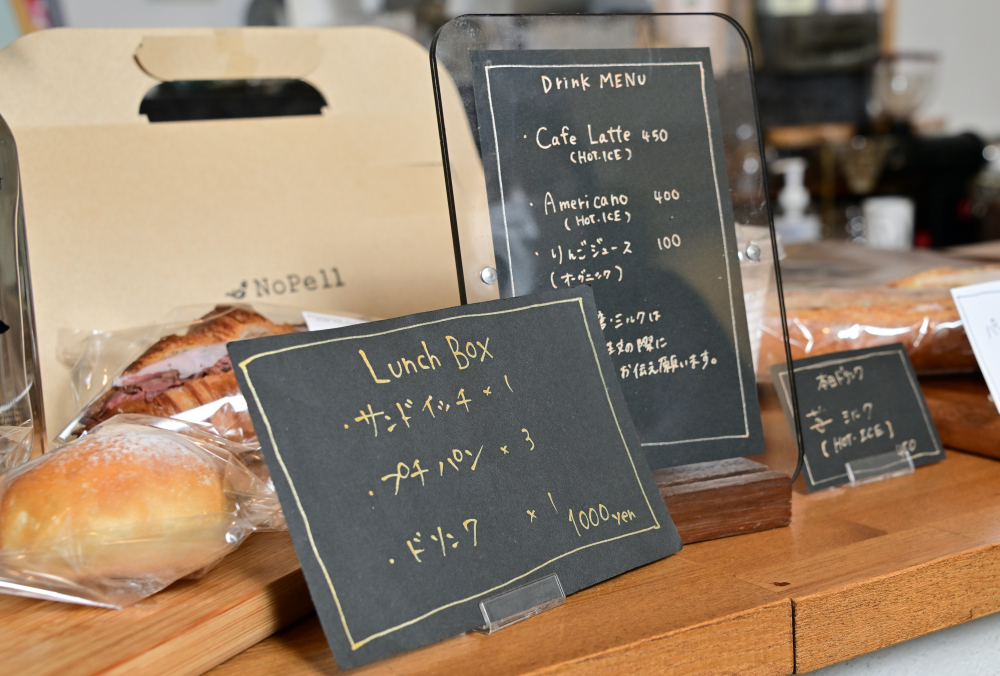 NoPell
Drink MENU
・Cafe Latte 450
(HOT.ICE)
・Americano 400
(HOT.ICE)
・りんごジュース 100
(オーガニック)
・ミルクは
の際に
お伝え願います。
Lunch BOX
・サンドイッチ × 1
・プチパン × 3
・ドリンク × 1
1000yen
本日ドリンク
ミルク
(HOT.ICE)